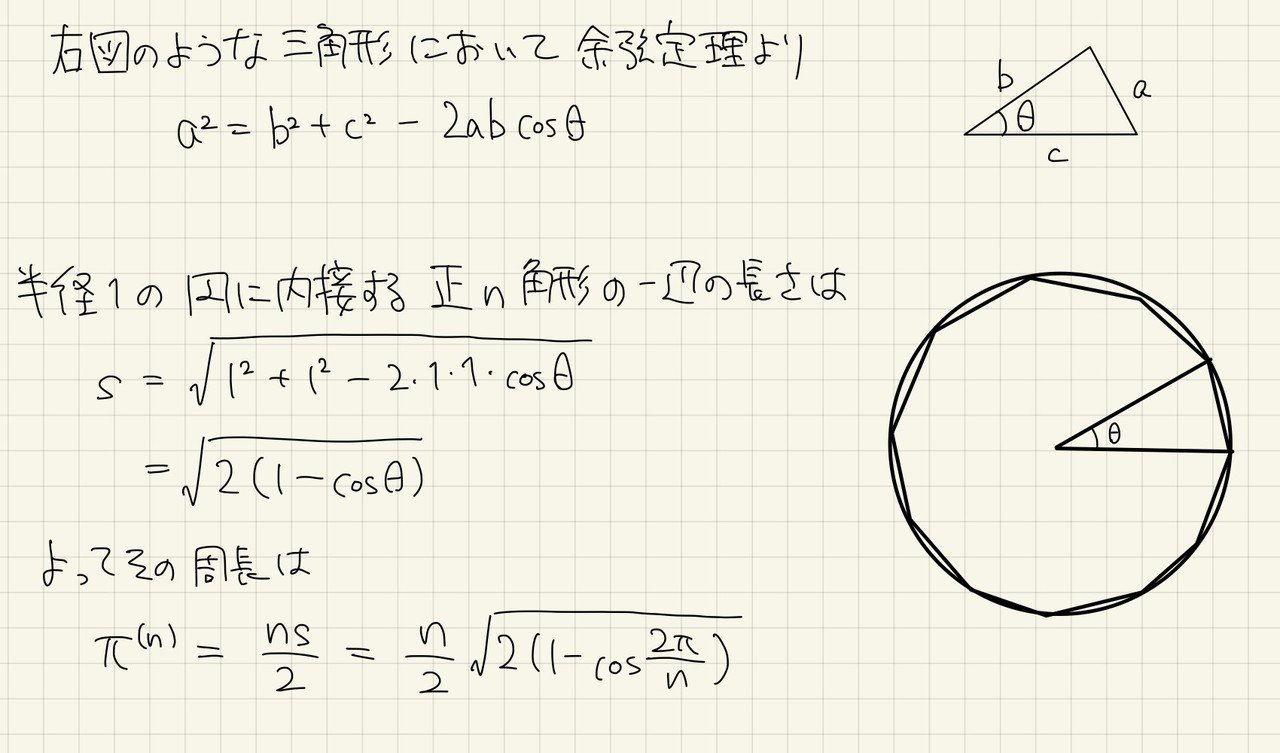 右図のような三角形において 余弦定理より
a² = b² + c² - 2ab cosθ
b
a
θ
c
半径1の円に内接する正n角形の一辺の長さは
s = √(1² + 1² - 2・1・1・cosθ)
= √(2(1-cosθ))
θ
よってその周長は
π⁽ⁿ⁾ = ns/2 = n/2 √(2(1-cos 2π/n))